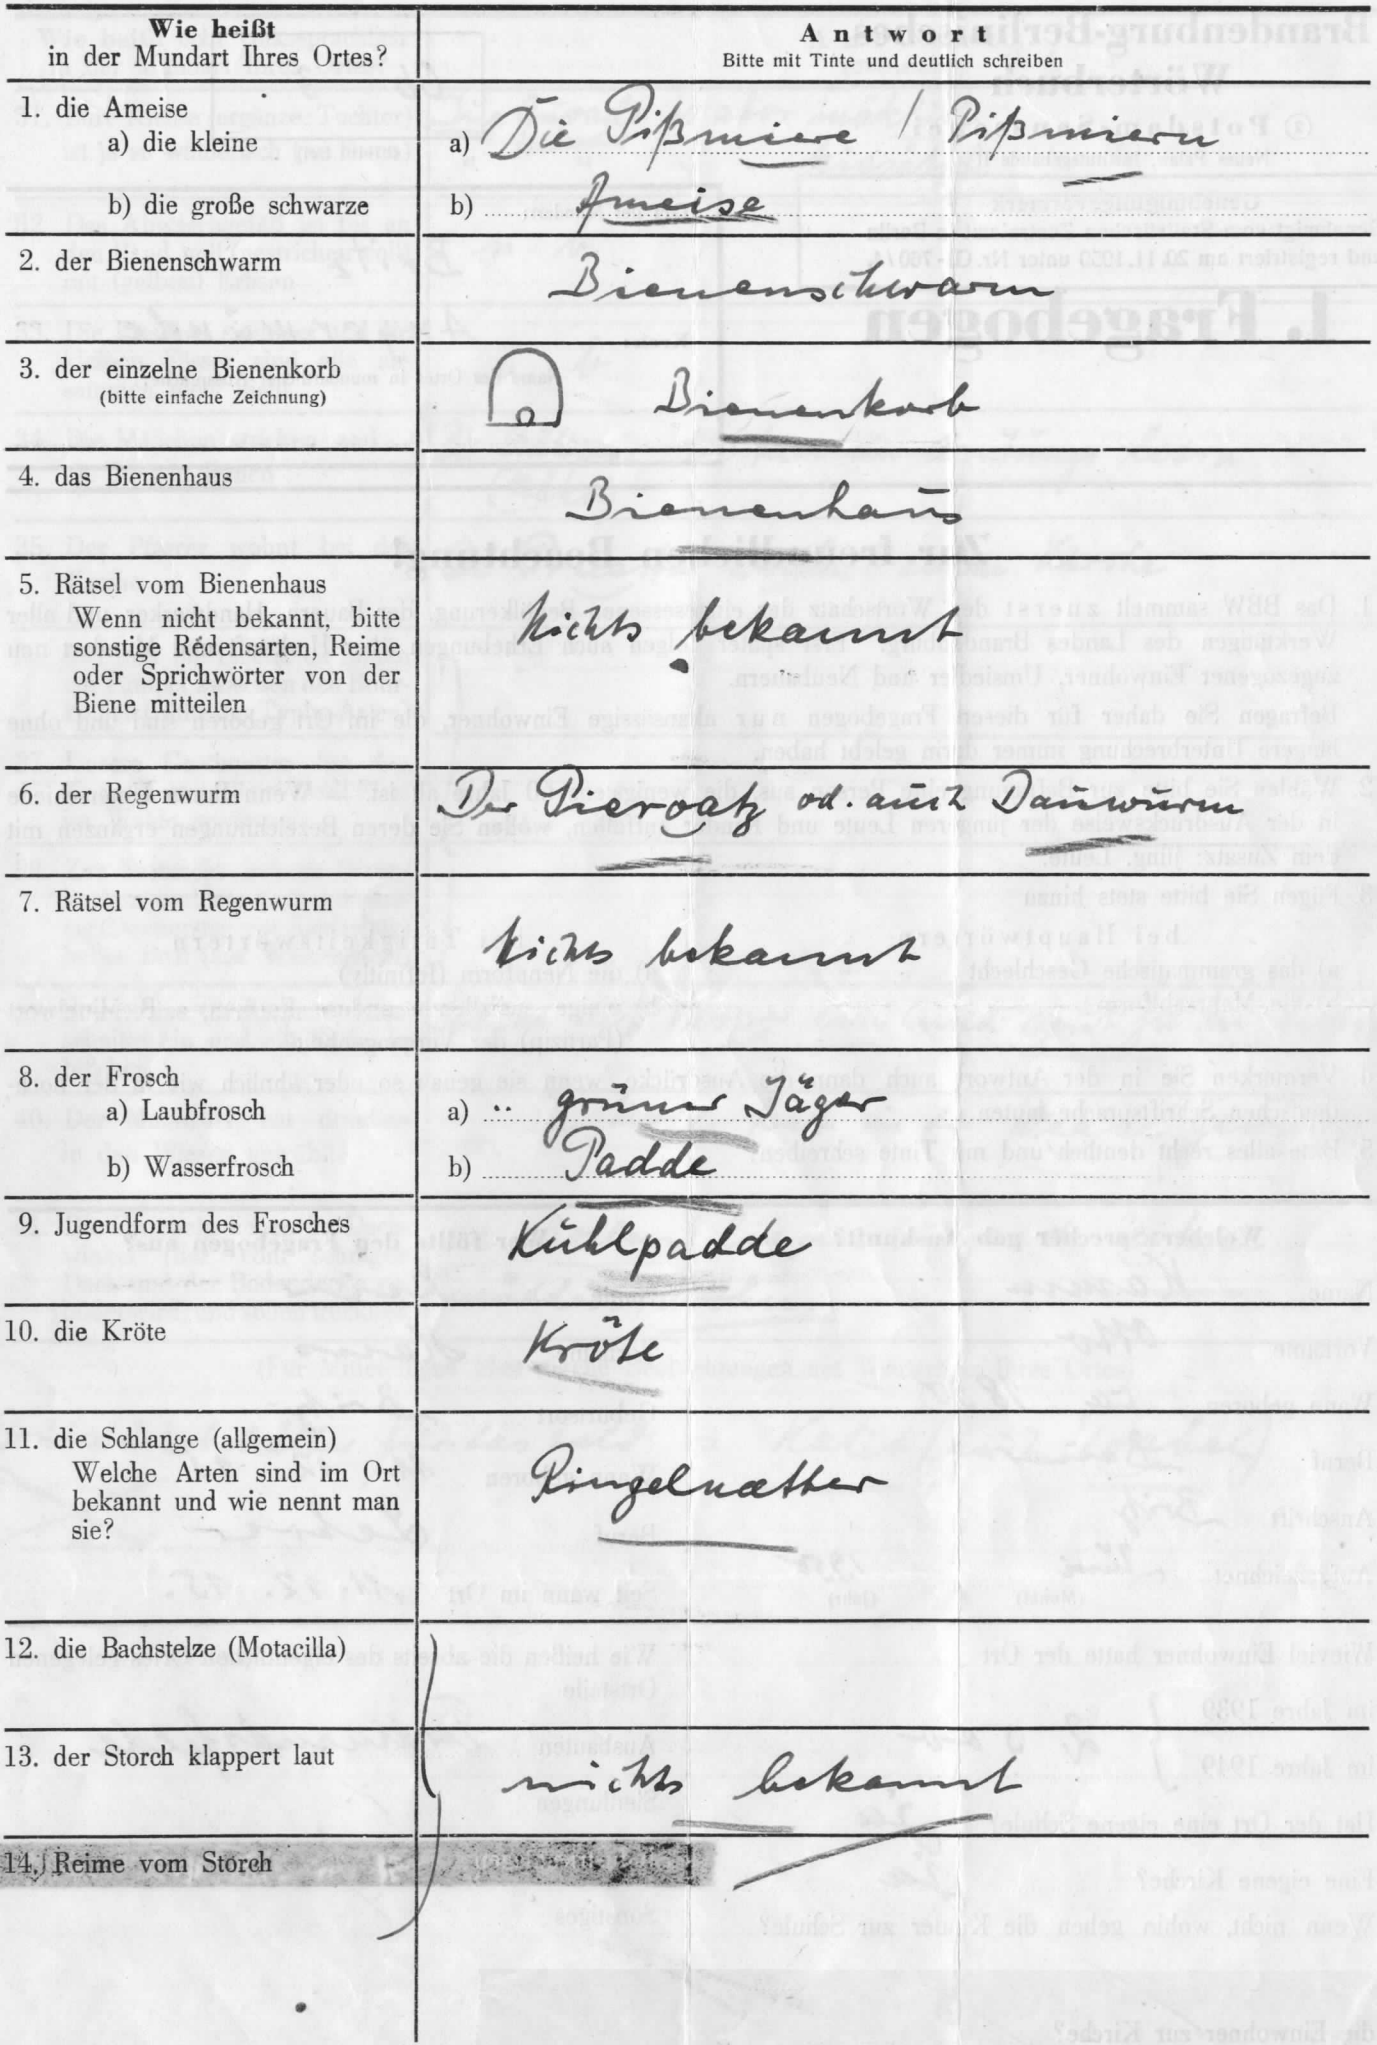 Wie heißt
in der Mundart Ihres Ortes?
Antwort
Bitte mit Tinte und deutlich schreiben
1. die Ameise
a) die kleine
a) Die Pißmiere / Pißmiern
b) die große schwarze
b) Ameise
2. der Bienenschwarm
Bienenschwarm
3. der einzelne Bienenkorb
(bitte einfache Zeichnung)
Bienenkorb
4. das Bienenhaus
Bienenhaus
5. Rätsel vom Bienenhaus
Wenn nicht bekannt, bitte
sonstige Redensarten, Reime
oder Sprichwörter von der
Biene mitteilen
Nichts bekannt
6. der Regenwurm
Der Pieroatz od. auch Dauwurm
7. Rätsel vom Regenwurm
Nichts bekannt
8. der Frosch
a) Laubfrosch
a) grüner Jäger
b) Wasserfrosch
b) Padde
9. Jugendform des Frosches
Kuhlpadde
10. die Kröte
Kröte
11. die Schlange (allgemein)
Welche Arten sind im Ort
bekannt und wie nennt man
sie?
Ringelnatter
12. die Bachstelze (Motacilla)
13. der Storch klappert laut
nichts bekannt
14. Reime vom Storch